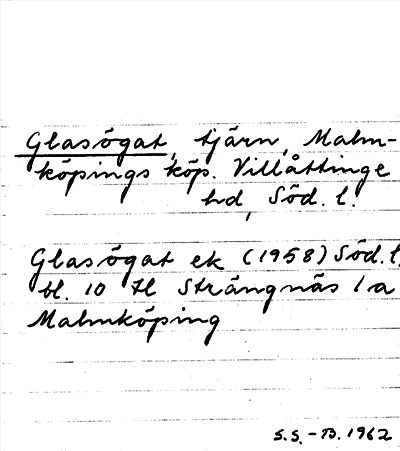 Glasögat, tjärn, Malm-
köpings köp. Villåttinge
hd, Söd. l.
Glasögat ek (1958) Söd. l.
bl. 10 tl Strängnäs 1a
Malmköping
S.S.-B. 1962